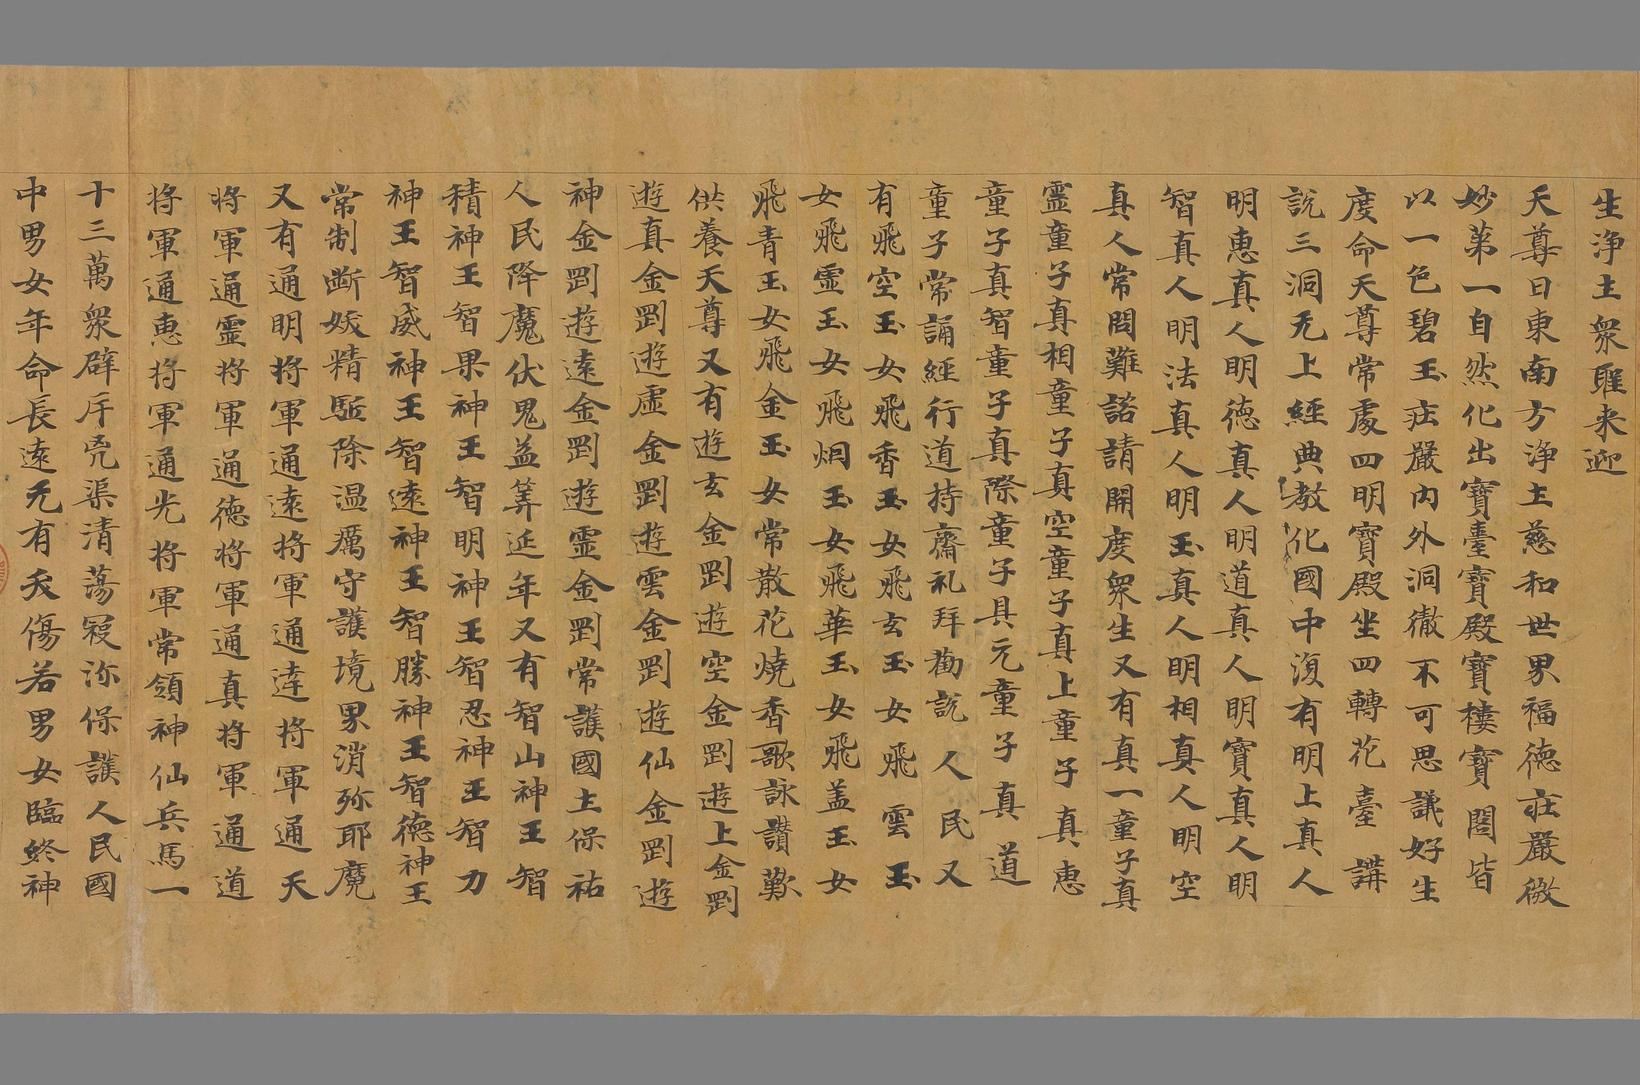 生浄土衆聖来迎
天尊曰東南方浄土慈和世界福徳莊嚴微
妙苐一自然化出寶臺寶殿寶樓寶閣皆
以一色碧玉莊嚴内外洞徹不可思議好生
度命天尊常處四明寶殿坐四轉花臺講
説三洞无上經典教化國中復有明上真人
明惠真人明徳真人明道真人明寶真人明
智真人明法真人明玉真人明相真人明空
真人常問難諮請開度衆生又有真一童子真
靈童子真相童子真空童子真上童子真惠
童子真智童子真際童子具元童子真道
童子常誦經行道持齋礼拜勸説人民又
有飛空玉女飛香玉女飛玄玉女飛雲玉
女飛靈玉女飛烟玉女飛華玉女飛盖玉女
飛青玉女飛金玉女常散花燒香歌詠讃歎
供養天尊又有遊玄金剛遊空金剛遊上金剛
遊真金剛遊虚金剛遊雲金剛遊仙金剛遊
神金剛遊遠金剛遊靈金剛常護國土保祐
人民降魔伏鬼益筭延年又有智山神王智
積神王智果神王智明神王智忍神王智力
神王智威神王智遠神王智勝神王智德神王
常制斷妖精駈除温癘守護境界消殄耶魔
又有通明將軍通遠將軍通達將軍通天
將軍通靈將軍通德將軍通真將軍通道
將軍通惠將軍通光將軍常領神仙兵馬一
十三萬衆辟斥兇渠清蕩寇沴保護人民國
中男女年命長遠无有夭傷若男女臨終神